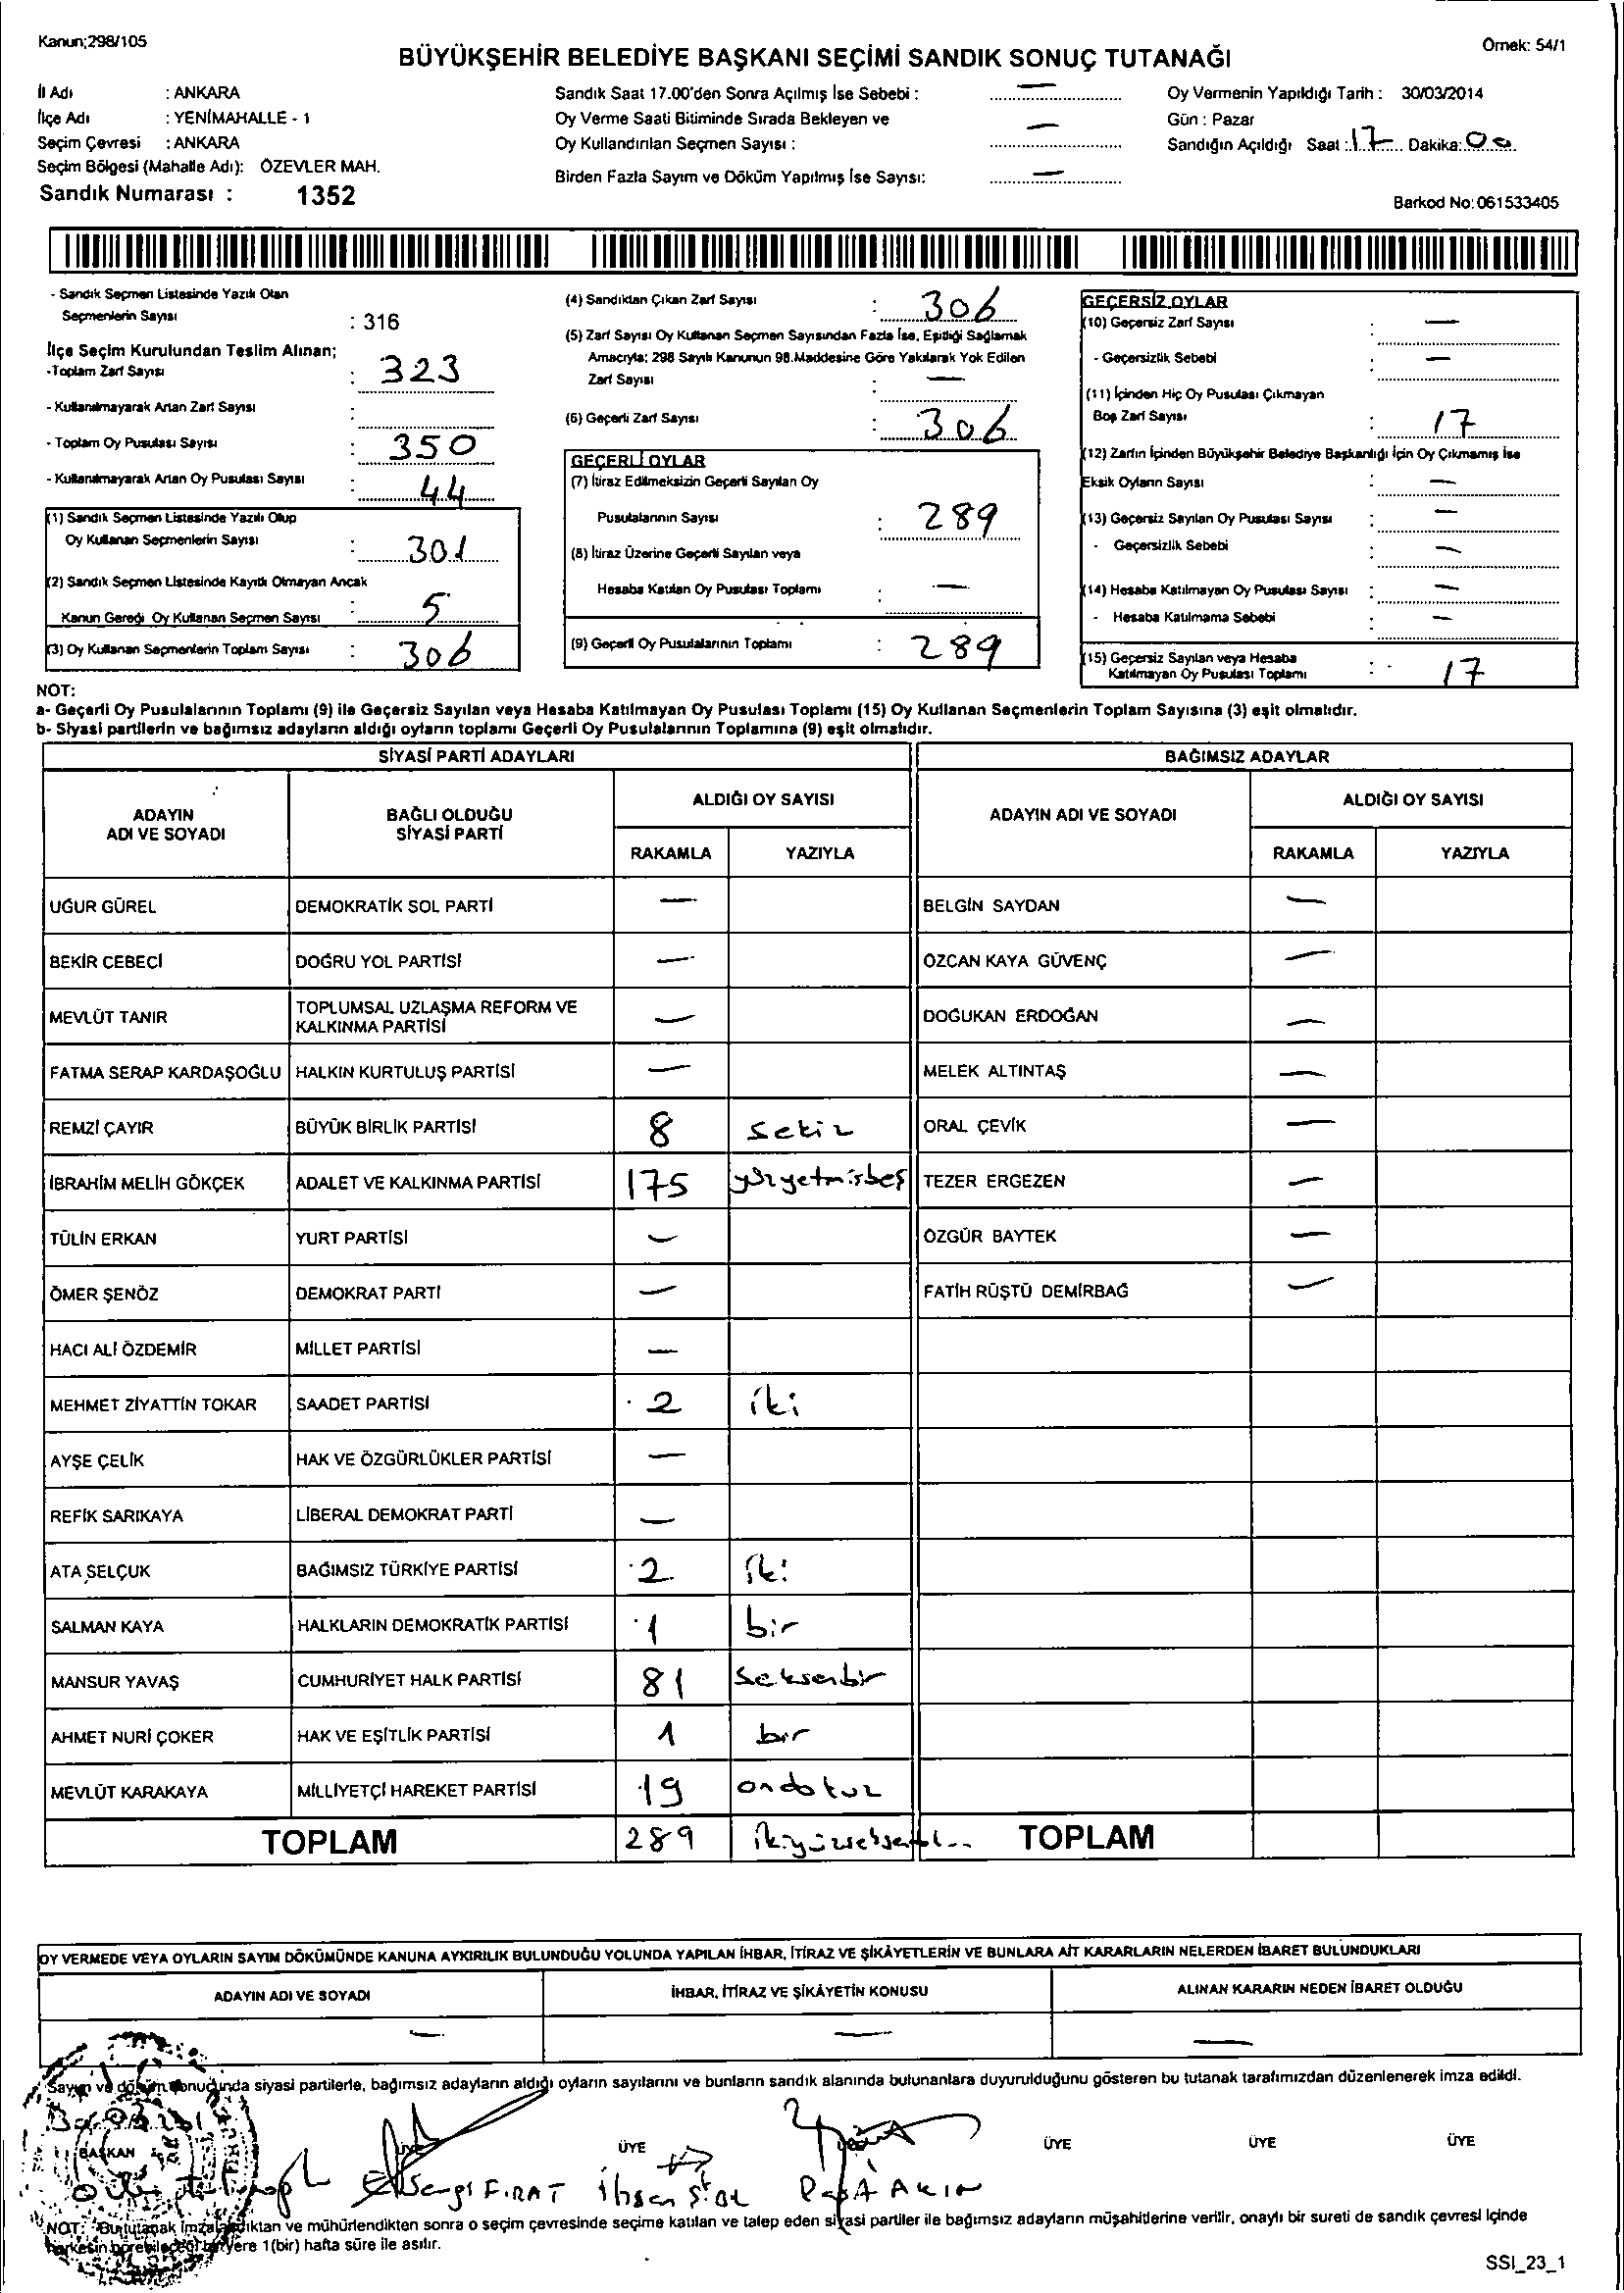 Kanun;298/105
Örnek: 54/1
BÜYÜKŞEHİR BELEDİYE BAŞKANI SEÇİMİ SANDIK SONUÇ TUTANAĞI
İl Adı : ANKARA
İlçe Adı : YENİMAHALLE - 1
Seçim Çevresi : ANKARA
Seçim Bölgesi (Mahalle Adı): ÖZEVLER MAH.
Sandık Numarası : 1352
Sandık Saat 17.00'den Sonra Açılmış İse Sebebi : —
Oy Verme Saati Bitiminde Sırada Bekleyen ve
Oy Kullandırılan Seçmen Sayısı : —
Birden Fazla Sayım ve Döküm Yapılmış İse Sayısı: —
Oy Vermenin Yapıldığı Tarih : 30/03/2014
Gün : Pazar
Sandığın Açıldığı Saat : 17 Dakika: 00
Barkod No: 061533405
- Sandık Seçmen Listesinde Yazılı Olan
Seçmenlerin Sayısı : 316
İlçe Seçim Kurulundan Teslim Alınan;
-Toplam Zarf Sayısı : 323
- Kullanılmayarak Artan Zarf Sayısı :
- Toplam Oy Pusulası Sayısı : 350
- Kullanılmayarak Artan Oy Pusulası Sayısı : 44
(1) Sandık Seçmen Listesinde Yazılı Olup
Oy Kullanan Seçmenlerin Sayısı : 301
(2) Sandık Seçmen Listesinde Kayıtlı Olmayan Ancak
Kanun Gereği Oy Kullanan Seçmen Sayısı : 5
(3) Oy Kullanan Seçmenlerin Toplam Sayısı : 306
(4) Sandıktan Çıkan Zarf Sayısı : 306
(5) Zarf Sayısı Oy Kullanan Seçmen Sayısından Fazla İse, Eşitliği Sağlamak
Amacıyla; 298 Sayılı Kanunun 98.Maddesine Göre Yakılarak Yok Edilen
Zarf Sayısı : —
(6) Geçerli Zarf Sayısı : 306
GEÇERLİ OYLAR
(7) İtiraz Edilmeksizin Geçerli Sayılan Oy
Pusulalarının Sayısı : 289
(8) İtiraz Üzerine Geçerli Sayılan veya
Hesaba Katılan Oy Pusulası Toplamı : —
(9) Geçerli Oy Pusulalarının Toplamı : 289
GEÇERSİZ OYLAR
(10) Geçersiz Zarf Sayısı : —
- Geçersizlik Sebebi : —
(11) İçinden Hiç Oy Pusulası Çıkmayan
Boş Zarf Sayısı : 17
(12) Zarfın İçinden Büyükşehir Belediye Başkanlığı İçin Oy Çıkmamış İse
Eksik Oyların Sayısı : —
(13) Geçersiz Sayılan Oy Pusulası Sayısı : —
- Geçersizlik Sebebi : —
(14) Hesaba Katılmayan Oy Pusulası Sayısı : —
- Hesaba Katılmama Sebebi : —
(15) Geçersiz Sayılan veya Hesaba
Katılmayan Oy Pusulası Toplamı : 17
NOT:
a- Geçerli Oy Pusulalarının Toplamı (9) ile Geçersiz Sayılan veya Hesaba Katılmayan Oy Pusulası Toplamı (15) Oy Kullanan Seçmenlerin Toplam Sayısına (3) eşit olmalıdır.
b- Siyasi partilerin ve bağımsız adayların aldığı oyların toplamı Geçerli Oy Pusulalarının Toplamına (9) eşit olmalıdır.
SİYASİ PARTİ ADAYLARI BAĞIMSIZ ADAYLAR
ADAYIN ADI VE SOYADI BAĞLI OLDUĞU SİYASİ PARTİ ALDIĞI OY SAYISI ADAYIN ADI VE SOYADI ALDIĞI OY SAYISI
RAKAMLA YAZIYLA RAKAMLA YAZIYLA
UĞUR GÜREL DEMOKRATİK SOL PARTİ — BELGİN SAYDAN —
BEKİR CEBECİ DOĞRU YOL PARTİSİ — ÖZCAN KAYA GÜVENÇ —
MEVLÜT TANIR TOPLUMSAL UZLAŞMA REFORM VE KALKINMA PARTİSİ — DOĞUKAN ERDOĞAN —
FATMA SERAP KARDAŞOĞLU HALKIN KURTULUŞ PARTİSİ — MELEK ALTINTAŞ —
REMZİ ÇAYIR BÜYÜK BİRLİK PARTİSİ 8 sekiz ORAL ÇEVİK —
İBRAHİM MELİH GÖKÇEK ADALET VE KALKINMA PARTİSİ 175 yüzyetmişbeş TEZER ERGEZEN —
TÜLİN ERKAN YURT PARTİSİ — ÖZGÜR BAYTEK —
ÖMER ŞENÖZ DEMOKRAT PARTİ — FATİH RÜŞTÜ DEMİRBAĞ —
HACI ALİ ÖZDEMİR MİLLET PARTİSİ —
MEHMET ZİYATTİN TOKAR SAADET PARTİSİ 2 iki
AYŞE ÇELİK HAK VE ÖZGÜRLÜKLER PARTİSİ —
REFİK SARIKAYA LİBERAL DEMOKRAT PARTİ —
ATA SELÇUK BAĞIMSIZ TÜRKİYE PARTİSİ 2 iki
SALMAN KAYA HALKLARIN DEMOKRATİK PARTİSİ 1 bir
MANSUR YAVAŞ CUMHURİYET HALK PARTİSİ 81 seksenbir
AHMET NURİ ÇOKER HAK VE EŞİTLİK PARTİSİ 1 bir
MEVLÜT KARAKAYA MİLLİYETÇİ HAREKET PARTİSİ 19 ondokuz
TOPLAM 289 TOPLAM
OY VERMEDE VEYA OYLARIN SAYIM DÖKÜMÜNDE KANUNA AYKIRILIK BULUNDUĞU YOLUNDA YAPILAN İHBAR, İTİRAZ VE ŞİKÂYETLERİN VE BUNLARA AİT KARARLARIN NELERDEN İBARET BULUNDUKLARI
ADAYIN ADI VE SOYADI İHBAR, İTİRAZ VE ŞİKÂYETİN KONUSU ALINAN KARARIN NEDEN İBARET OLDUĞU
— — —
Sayım ve döküm sonucunda siyasi partilerle, bağımsız adayların aldığı oyların sayılarını ve bunların sandık alanında bulunanlara duyurulduğunu gösteren bu tutanak tarafımızdan düzenlenerek imza edildi.
BAŞKAN ÜYE ÜYE ÜYE ÜYE
Sergi FIRAT İhsan AKIN
NOT: Bu tutanak imzalandıktan ve mühürlendikten sonra o seçim çevresinde seçime katılan ve talep eden siyasi partiler ile bağımsız adayların müşahitlerine verilir, onaylı bir sureti de sandık çevresi içinde
herkesin görebileceği bir yere 1(bir) hafta süre ile asılır.
SSI_23_1